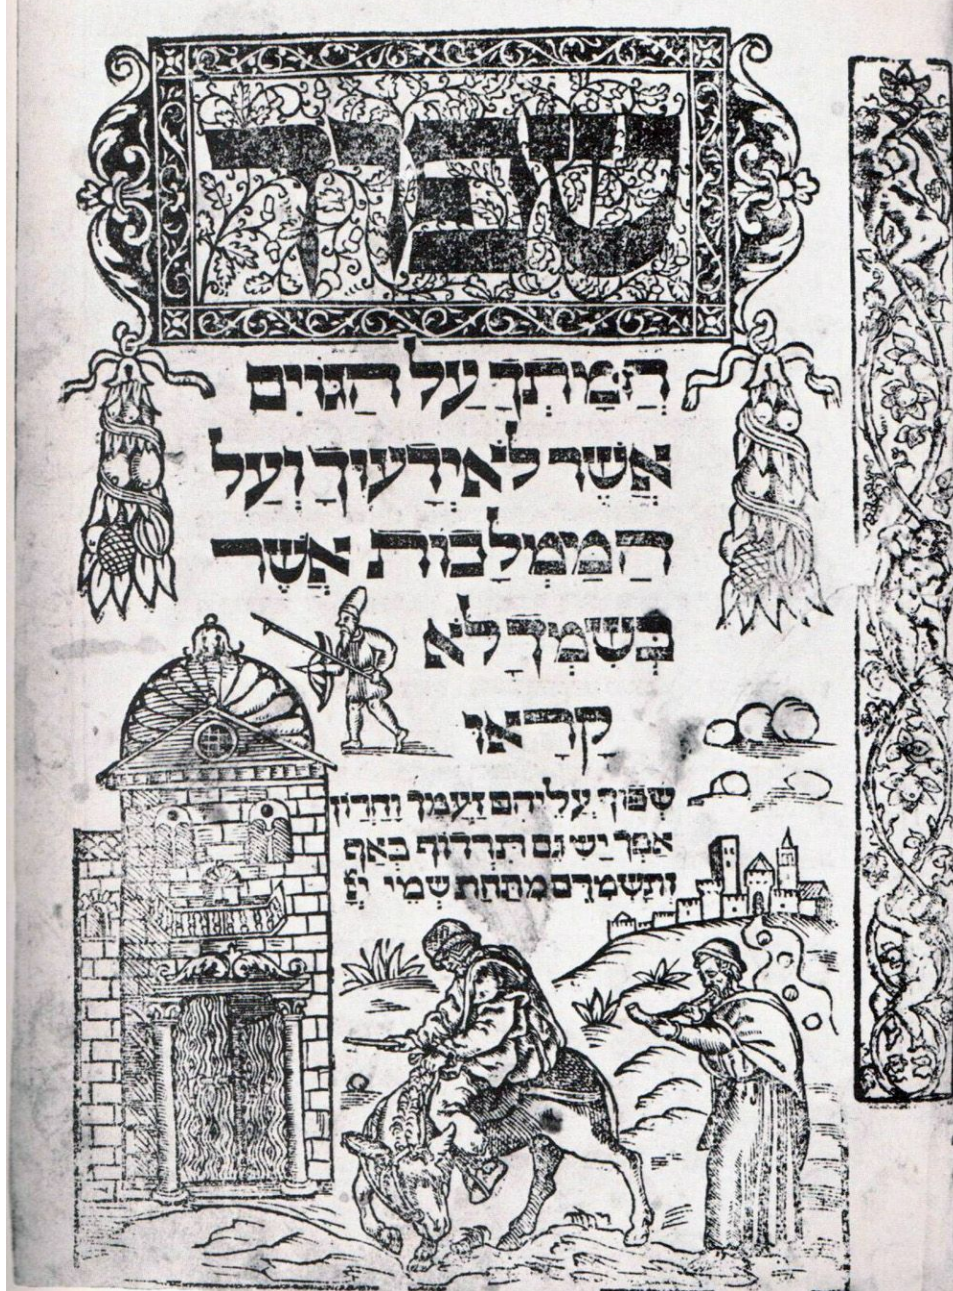 שפוך
חֲמָתְךָ עַל הַגּוֹיִם
אֲשֶׁר לֹא יְדָעוּךָ וְעַל
הַמַּמְלָכוֹת אֲשֶׁר
בְּשִׁמְךָ לֹא
קָרָאוּ
שְׁפוֹךְ עֲלֵיהֶם זַעְמֶךָ וַחֲרוֹן
אַפְּךָ יַשִּׂגֵם תִּרְדוֹף בְּאַף
וְתַשְׁמִדֵם מִתַּחַת שְׁמֵי יְיָ